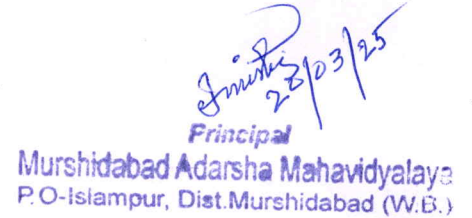 28/03/25
Principal
Murshidabad Adarsha Mahavidyalaya
P.O-Islampur, Dist.Murshidabad (W.B.)